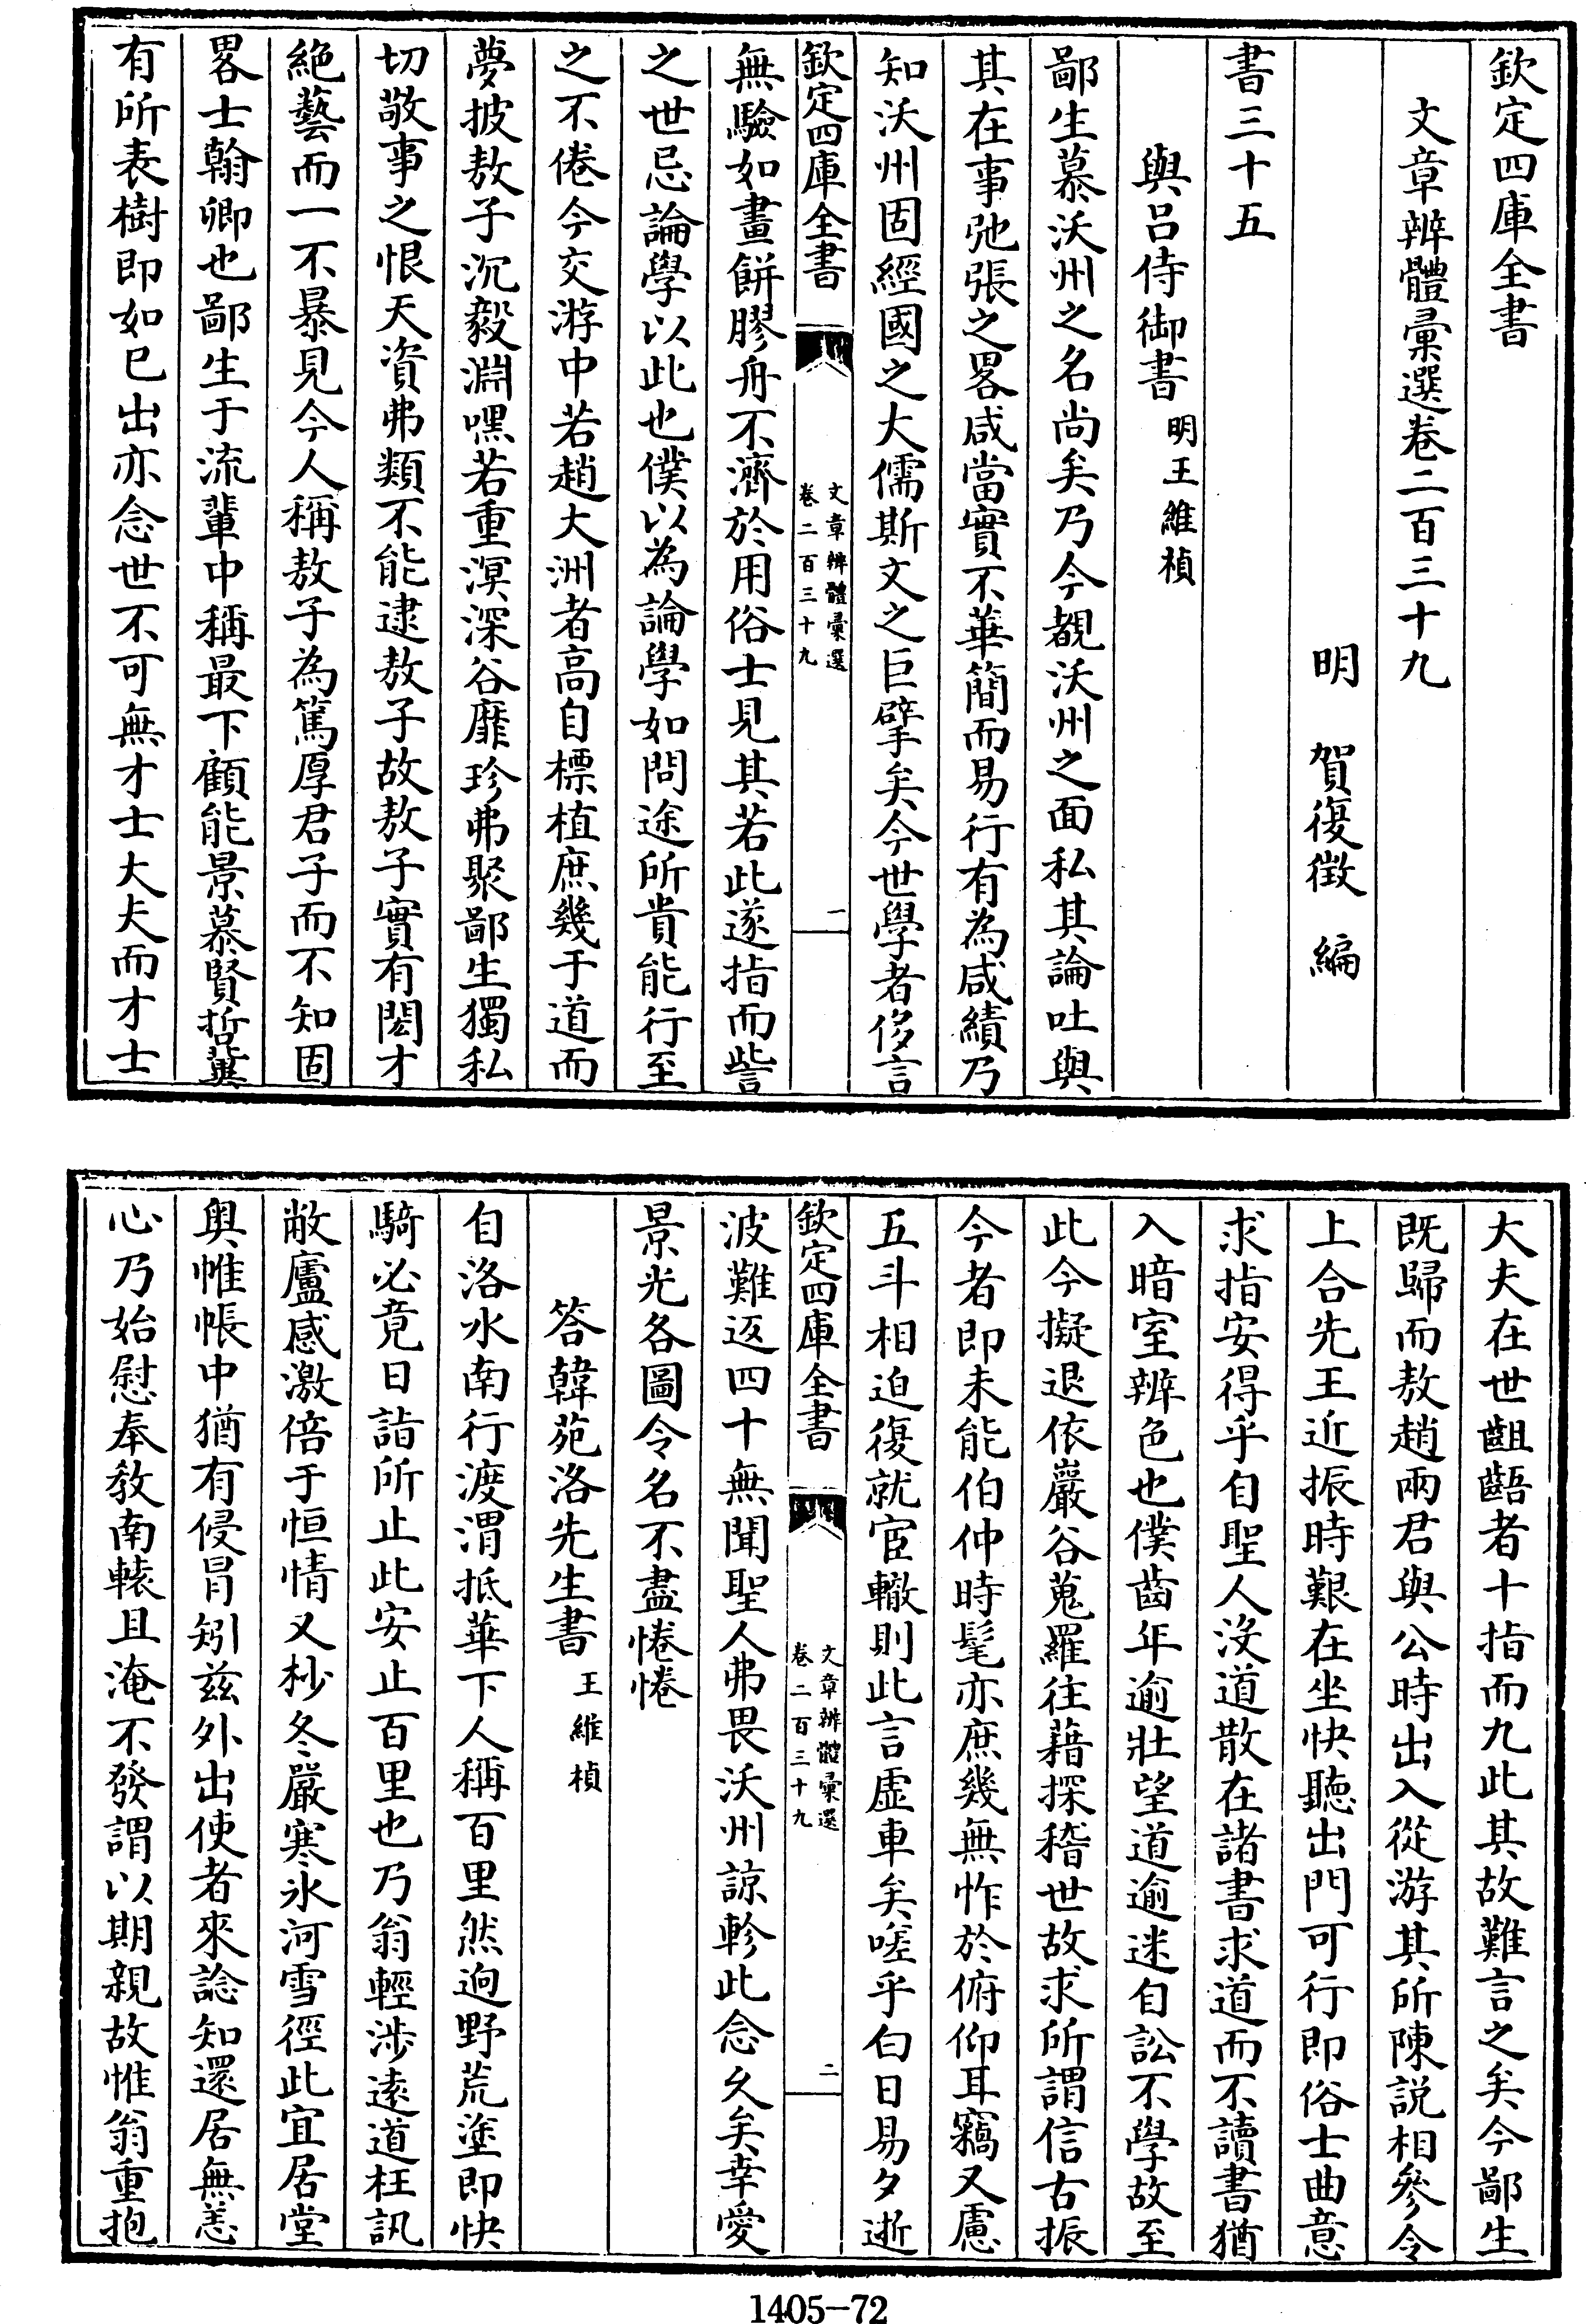 欽定四庫全書
文章辨體彙選卷二百三十九
明 賀復徵 編
書三十五
與呂侍御書 明王維楨
鄙生慕沃州之名尚矣乃今覩沃州之面私其論吐與
其在事弛張之畧咸當實不華簡而易行有為咸績乃
知沃州固經國之大儒斯文之巨擘矣今世學者侈言
欽定四庫全書
文章辨體彙選
卷二百三十九
一
無驗如畫餅膠舟不濟於用俗士見其若此遂指而訾
之世忌論學以此也僕以為論學如問途所貴能行至
之不倦今交游中若趙大洲者高自標植庶幾于道而
夢披敖子沉毅淵嘿若重溟深谷靡珍弗聚鄙生獨私
切敬事之恨天資弗類不能逮敖子故敖子實有閎才
絶藝而一不暴見今人稱敖子為篤厚君子而不知固
畧士翰卿也鄙生于流輩中稱最下顧能景慕賢哲冀
有所表樹即如已出亦念世不可無才士大夫而才士
大夫在世齟齬者十指而九此其故難言之矣今鄙生
既歸而敖趙兩君與公時出入從游其所陳説相參令
上合先王近振時艱在坐快聽出門可行即俗士曲意
求指安得乎自聖人没道散在諸書求道而不讀書猶
入暗室辨色也僕齒年逾壯望道逾迷自訟不學故至
此今擬退依嚴谷蒐羅往藉探稽世故求所謂信古振
今者即未能伯仲時髦亦庶幾無怍於俯仰耳竊又慮
五斗相迫復就宦轍則此言虛車矣嗟乎白日易夕逝
欽定四庫全書
文章辨體彙選
卷二百三十九
二
波難返四十無聞聖人弗畏沃州諒軫此念久矣幸愛
景光各圖令名不盡惓惓
答韓苑洛先生書 王維楨
自洛水南行渡渭抵華下人稱百里然逈野荒塗即快
騎必竟日詣所止此安止百里也乃翁輕渉逺道枉訊
敝廬感激倍于恒情又杪冬嚴寒氷河雪徑此宜居堂
奥帷帳中猶有侵冐矧兹外出使者來諗知還居無恙
心乃始慰奉敎南轅且淹不發謂以期親故惟翁重抱
1405-72